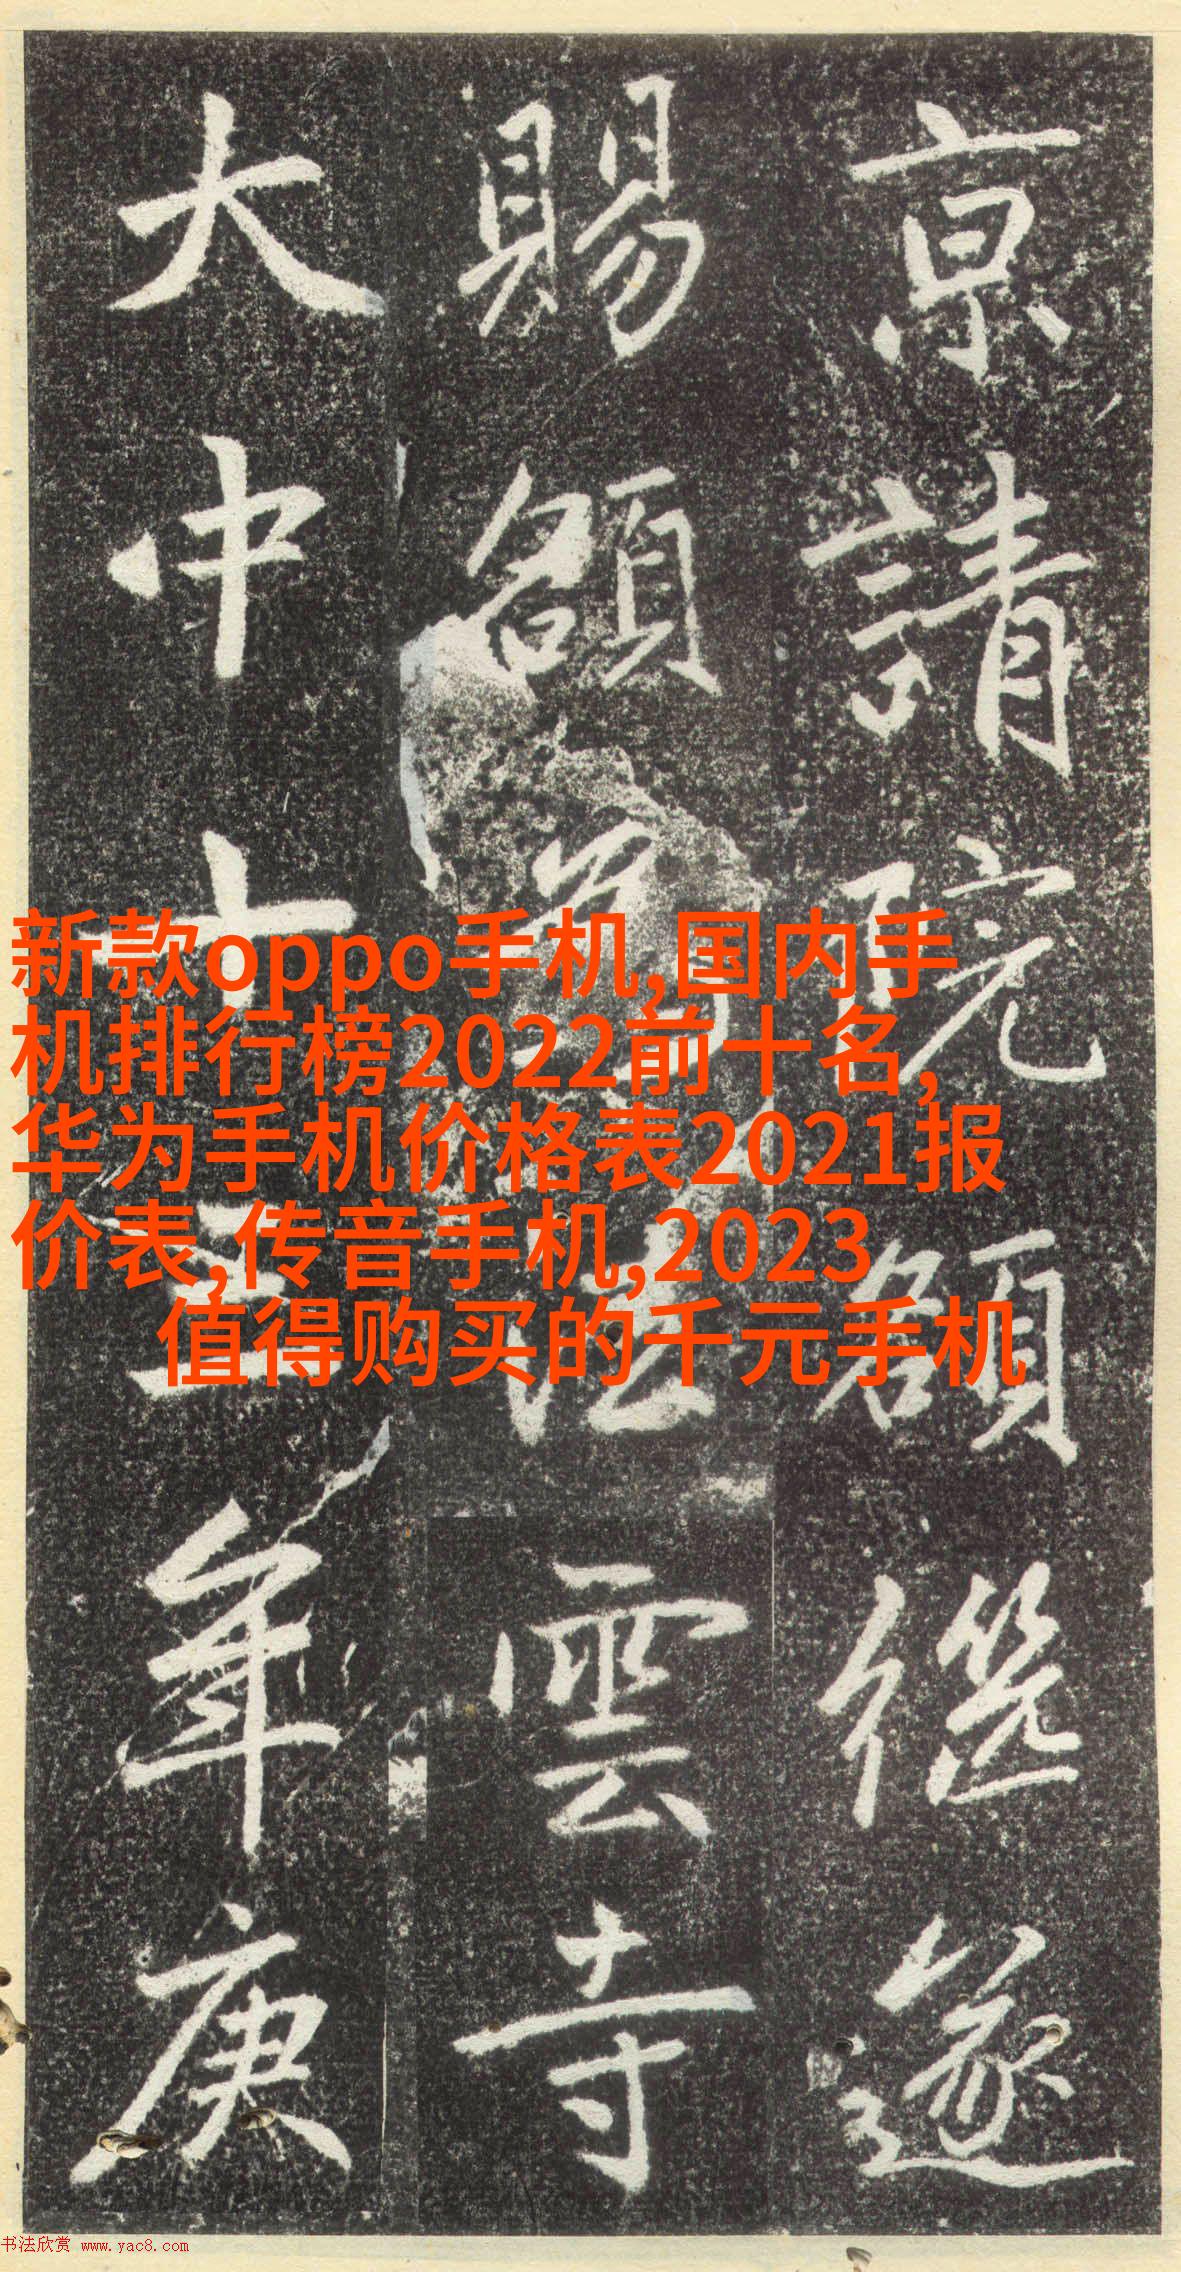 京請院額遂
賜額法雲寺
大中十三年庚
新款oppo手机,国内手
机排行榜2022前十名,
华为手机价格表2021报
价表,传音手机,2023
值得购买的千元手机
书法欣赏 www.yac8.com